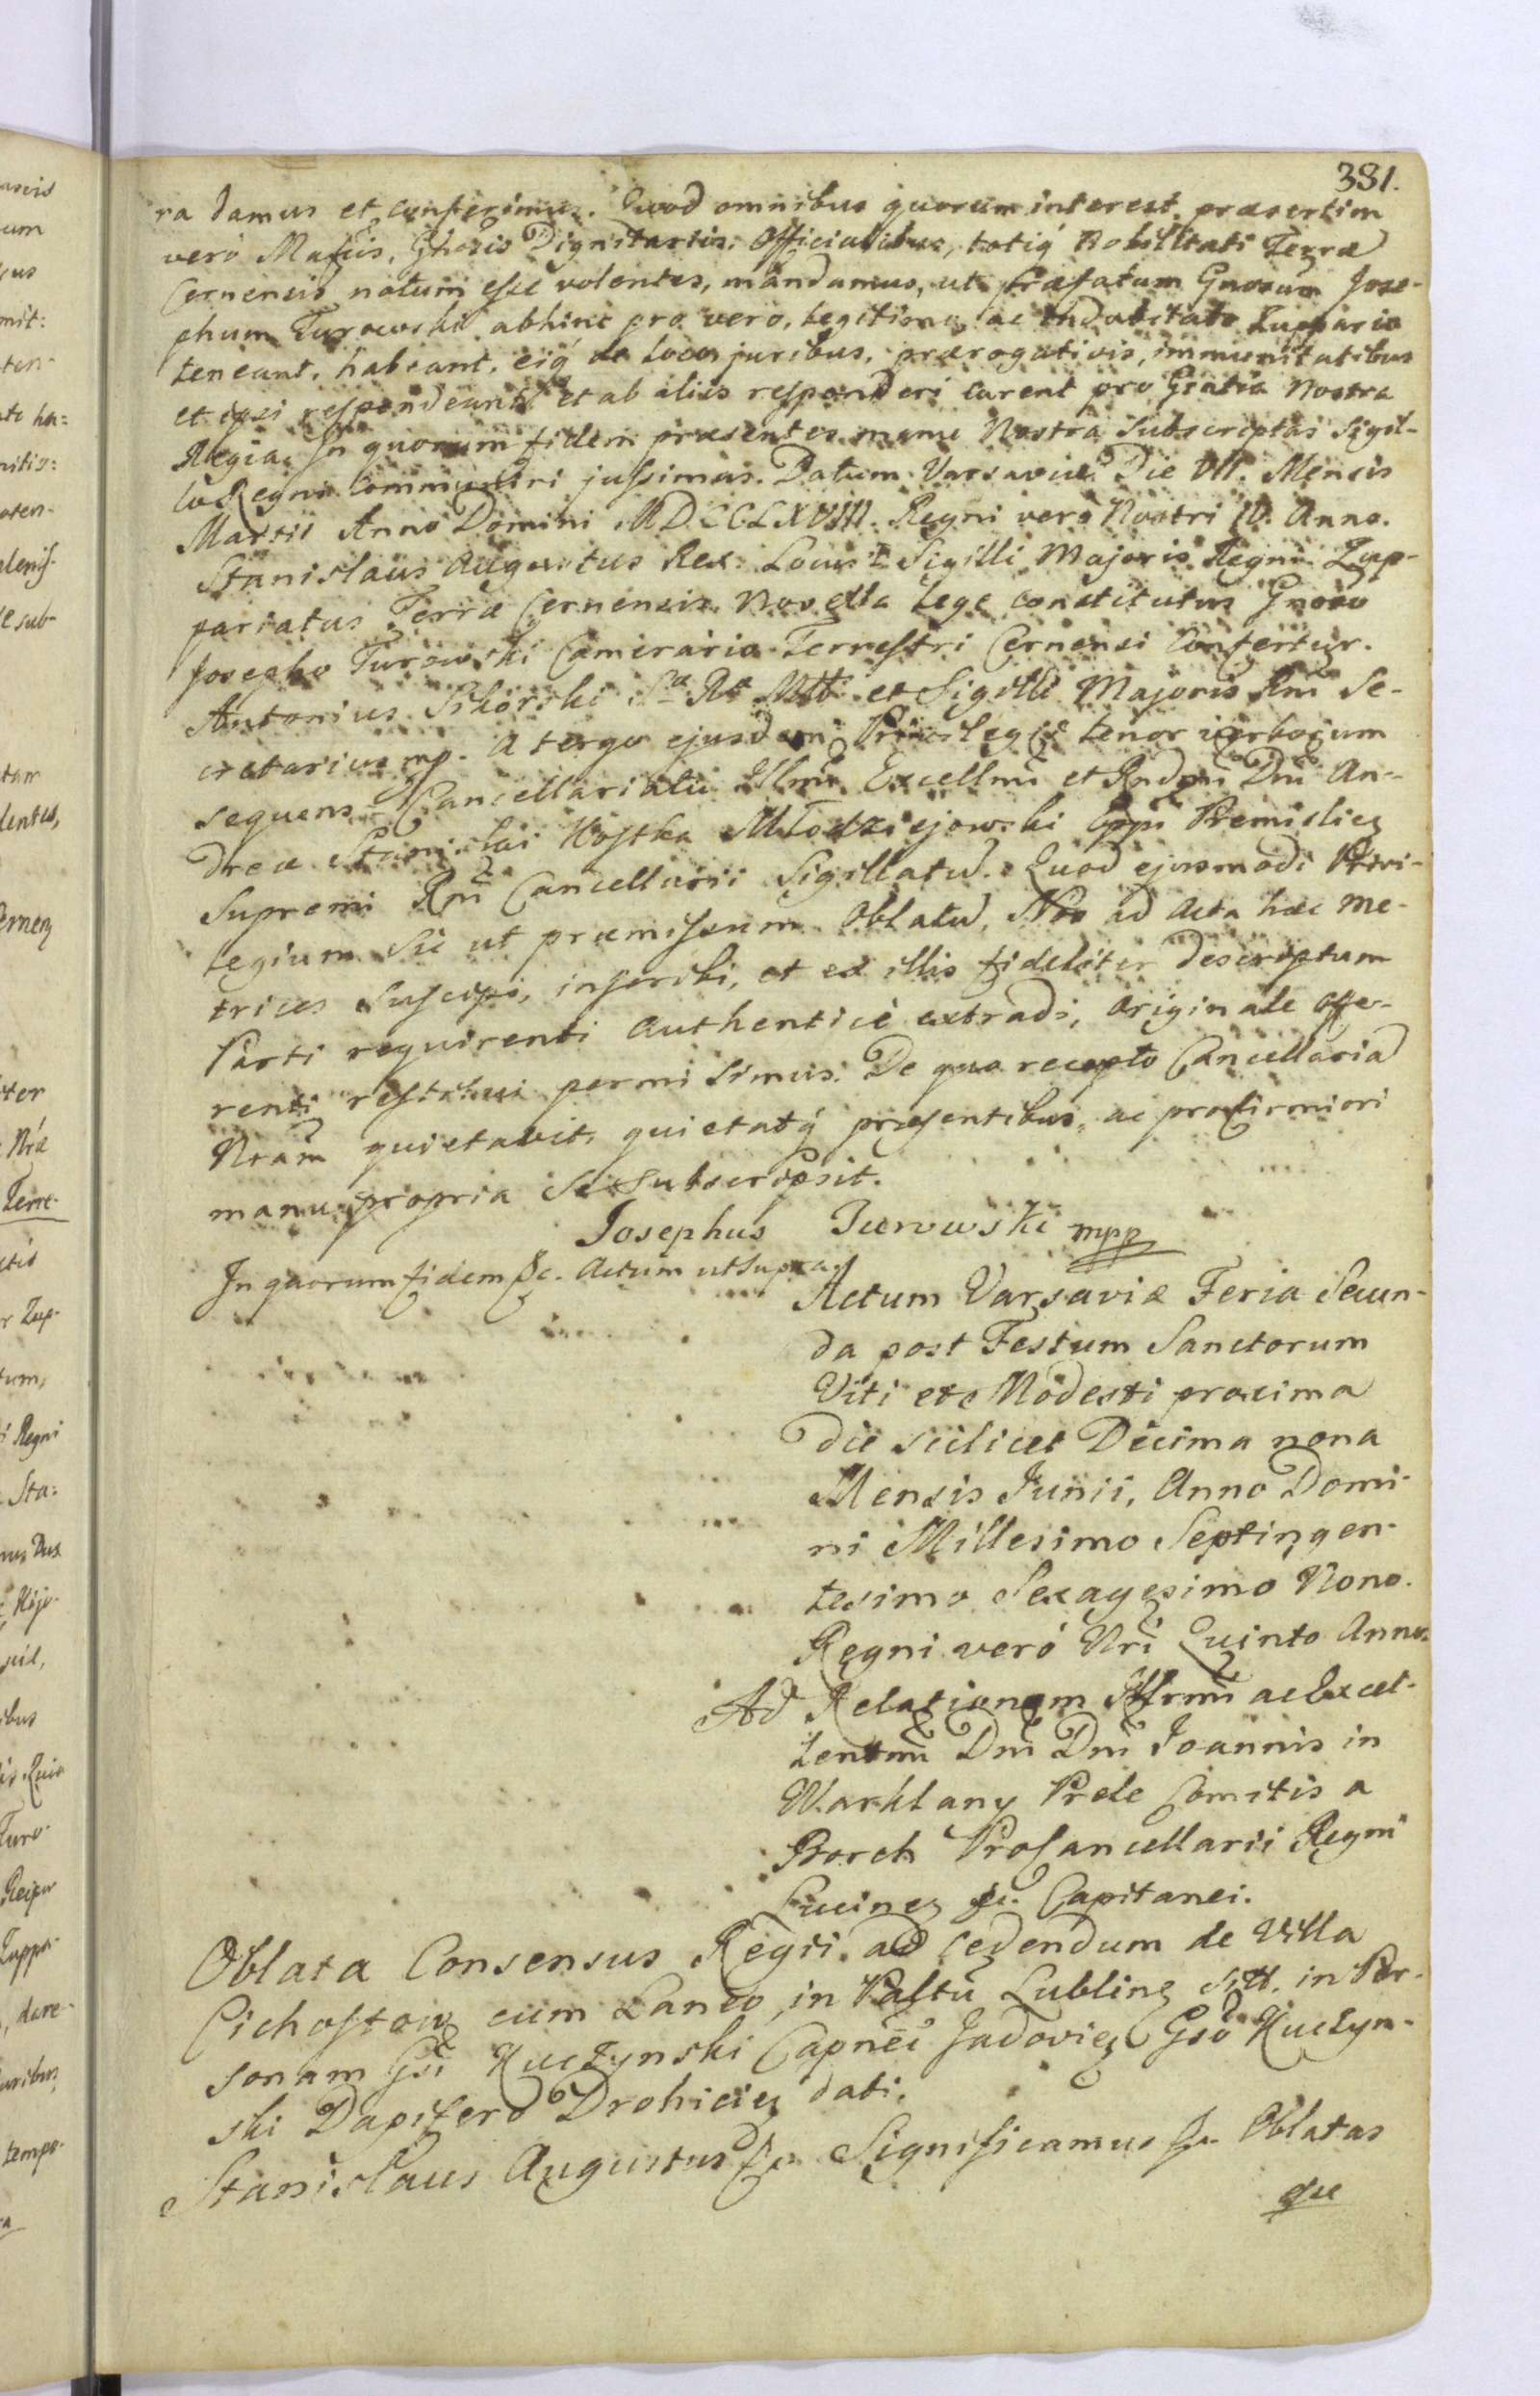 381.
ra damus et conferimus. Quod omnibus quorum interest, præsertim
verò Magcis, Gñosis Dignitariis, Officialibus, totiq́ Nobilitati Terræ
Cernensis notum esse volentes, mandamus, ut præfatum Gnosum Jose-
phum Turowski abhinc pro vero, legitimo, ac indubitato Zuppario
teneant, habeant, eiq́ de loco, juribus, prærogativis, immunitatibus
et ipsi respondeant et ab aliis responderi curent pro Gratia Nostra
Regia. In quorum fidem præsentes manu Nostra Subscriptas Sigil-
lo Regni Communiri jussimus. Datum Varsaviæ Die VII. Mensis
Martii Anno Domini MDCCLXVIII. Regni verò Nostri IV. Anno.
Stanislaus Augustus Rex. Locus Sigilli Majoris Regni. Zup-
pariatus Terræ Cernensis, Novella Lege constitutus Gnoso
Josepho Turowski Camerario Terrestri Cernensi Confertur.
Antonius Sikorski Sæ Ræ Mttis et Sigilli Majoris Rni Se-
cretarius mp. A tergo ejusdem Privilegii tenor verborum
sequens. Cancellariatu Illmi Excellmi et Rndmi Dni An-
dreæ Stanislai Kostka Młodziejowski Eppi Premislien
Supremi Rni Cancellarii Sigillatū. Quod ejusmodi Privi-
legium sic ut præmissum Oblatū, Nos ad Acta hæc Me-
trices Suscipi, inscribi, et ex illis fideliter descriptum
Parti requirenti authenticè extradi, originale offe-
renti restitui permisimus. De quo recepto Cancellaria
Nram quietavit, quietatq́ præsentibus, ac pro firmiori
manu propria se subscripsit.
Josephus Turowski mpp
In quorum fidem &c. Actum ut supra.
Actum Varsaviæ Feria Secun-
da post Festum Sanctorum
Viti et Modesti proxima
die scilicet Decima nona
Mensis Junii, Anno Domi-
ni Millesimo Septingen-
tesimo Sexagesimo Nono.
Regni verò Nri Quinto Anno.
Ad Relationem Illrmi ac Excel-
lentmi Dni Dni Joannis in
Warklany Prele Comitis a
Borch ProCancellarii Regni
Lucinen &c. Capitanei.
Oblata Consensus Regii ad cedendum de Villa
Cichostow cum Laneo, in Paltu Lublinen sitt. in Per-
sonam Gsi Kuczynski Capnei Jadovien Gso Kuczyn-
ski Dapifero Drohicien dati.
Stanislaus Augustus &c. Significamus &c. Oblatas
esse